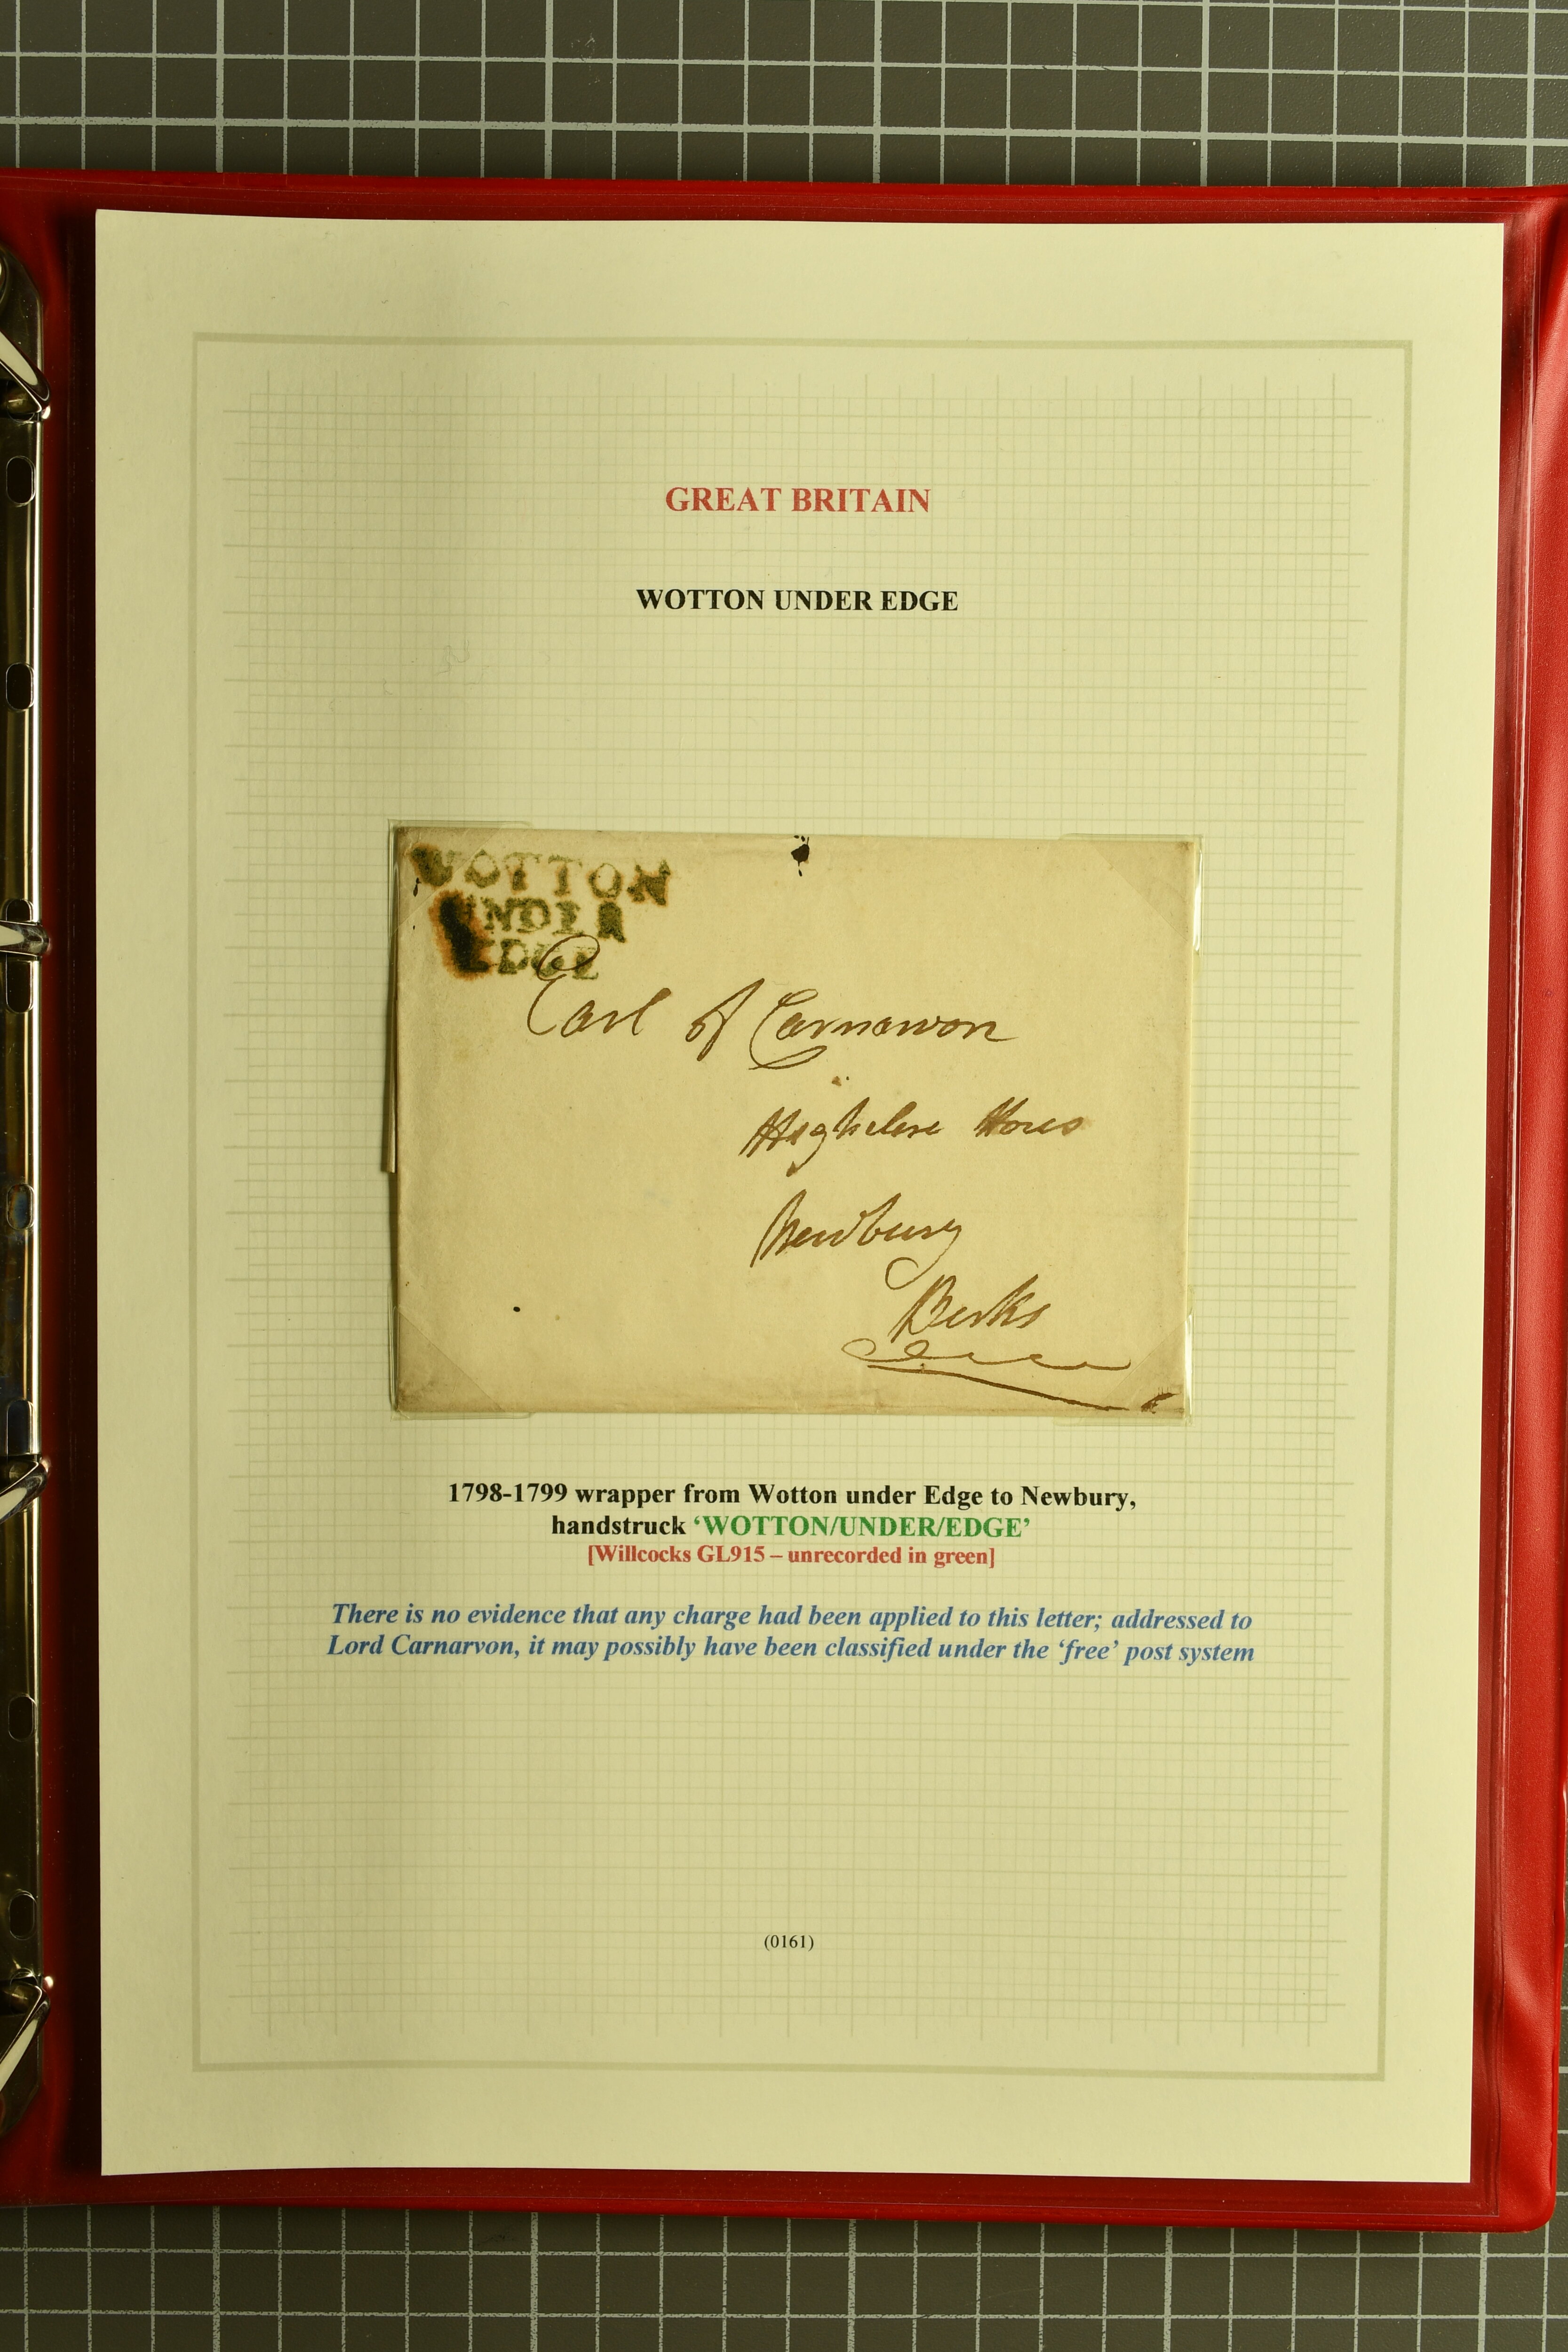 GREAT BRITAIN
WOTTON UNDER EDGE
WOTTON
UNDER
EDGE
Earl of Carnarvon
Highclere
Newbury
Berks
1798-1799 wrapper from Wotton under Edge to Newbury,
handstruck ‘WOTTON/UNDER/EDGE’
[Willcocks GL915 – unrecorded in green]
There is no evidence that any charge had been applied to this letter; addressed to
Lord Carnarvon, it may possibly have been classified under the ‘free’ post system
(0161)